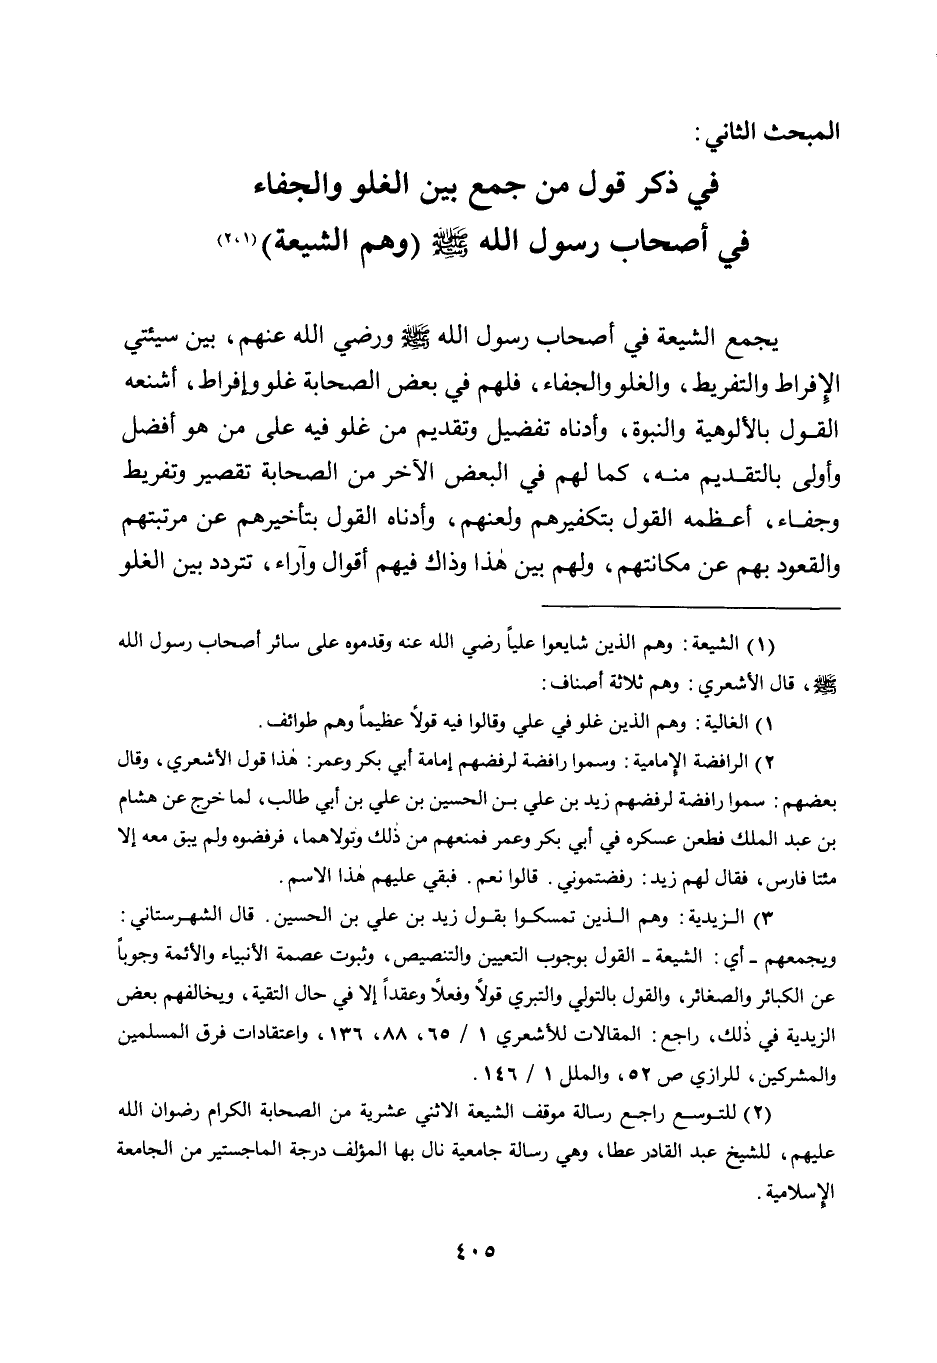 المبحث الثاني :
في ذكر قول من جمع بين الغلو والجفاء
في أصحاب رسول الله ﷺ (وهم الشيعة)(٢،١)
يجمع الشيعة في أصحاب رسول الله ﷺ ورضي الله عنهم، بين سيئتي
الإفراط والتفريط، والغلو والجفاء، فلهم في بعض الصحابة غلو وإفراط، أشنعه
القول بالألوهية والنبوة، وأدناه تفضيل وتقديم من غلو فيه على من هو أفضل
وأولى بالتقديم منه، كما لهم في البعض الآخر من الصحابة تقصير وتفريط
وجفاء، أعظمه القول بتكفيرهم ولعنهم، وأدناه القول بتأخيرهم عن مرتبتهم
والقعود بهم عن مكانتهم، ولهم بين هٰذا وذاك فيهم أقوال وآراء، تتردد بين الغلو
(١) الشيعة : وهم الذين شايعوا علياً رضي الله عنه وقدموه على سائر أصحاب رسول الله
ﷺ، قال الأشعري : وهم ثلاثة أصناف :
١) الغالية : وهم الذين غلو في علي وقالوا فيه قولاً عظيماً وهم طوائف .
٢) الرافضة الإمامية : وسموا رافضة لرفضهم إمامة أبي بكر وعمر : هٰذا قول الأشعري، وقال
بعضهم : سموا رافضة لرفضهم زيد بن علي بن الحسين بن علي بن أبي طالب، لما خرج عن هشام
بن عبد الملك فطعن عسكره في أبي بكر وعمر فمنعهم من ذٰلك وتولاهما، فرفضوه ولم يبق معه إلا
مئتا فارس، فقال لهم زيد : رفضتموني . قالوا نعم . فبقي عليهم هٰذا الاسم .
٣) الزيدية : وهم الذين تمسكوا بقول زيد بن علي بن الحسين . قال الشهرستاني :
ويجمعهم - أي : الشيعة - القول بوجوب التعيين والتنصيص، وثبوت عصمة الأنبياء والأئمة وجوباً
عن الكبائر والصغائر، والقول بالتولي والتبري قولاً وفعلاً وعقداً إلا في حال التقية، ويخالفهم بعض
الزيدية في ذٰلك، راجع : المقالات للأشعري ١ / ٦٥، ٨٨، ١٣٦، واعتقادات فرق المسلمين
والمشركين، للرازي ص ٥٢، والملل ١ / ١٤٦ .
(٢) للتوسع راجع رسالة موقف الشيعة الاثني عشرية من الصحابة الكرام رضوان الله
عليهم، للشيخ عبد القادر عطا، وهي رسالة جامعية نال بها المؤلف درجة الماجستير من الجامعة
الإسلامية .
٤٠٥